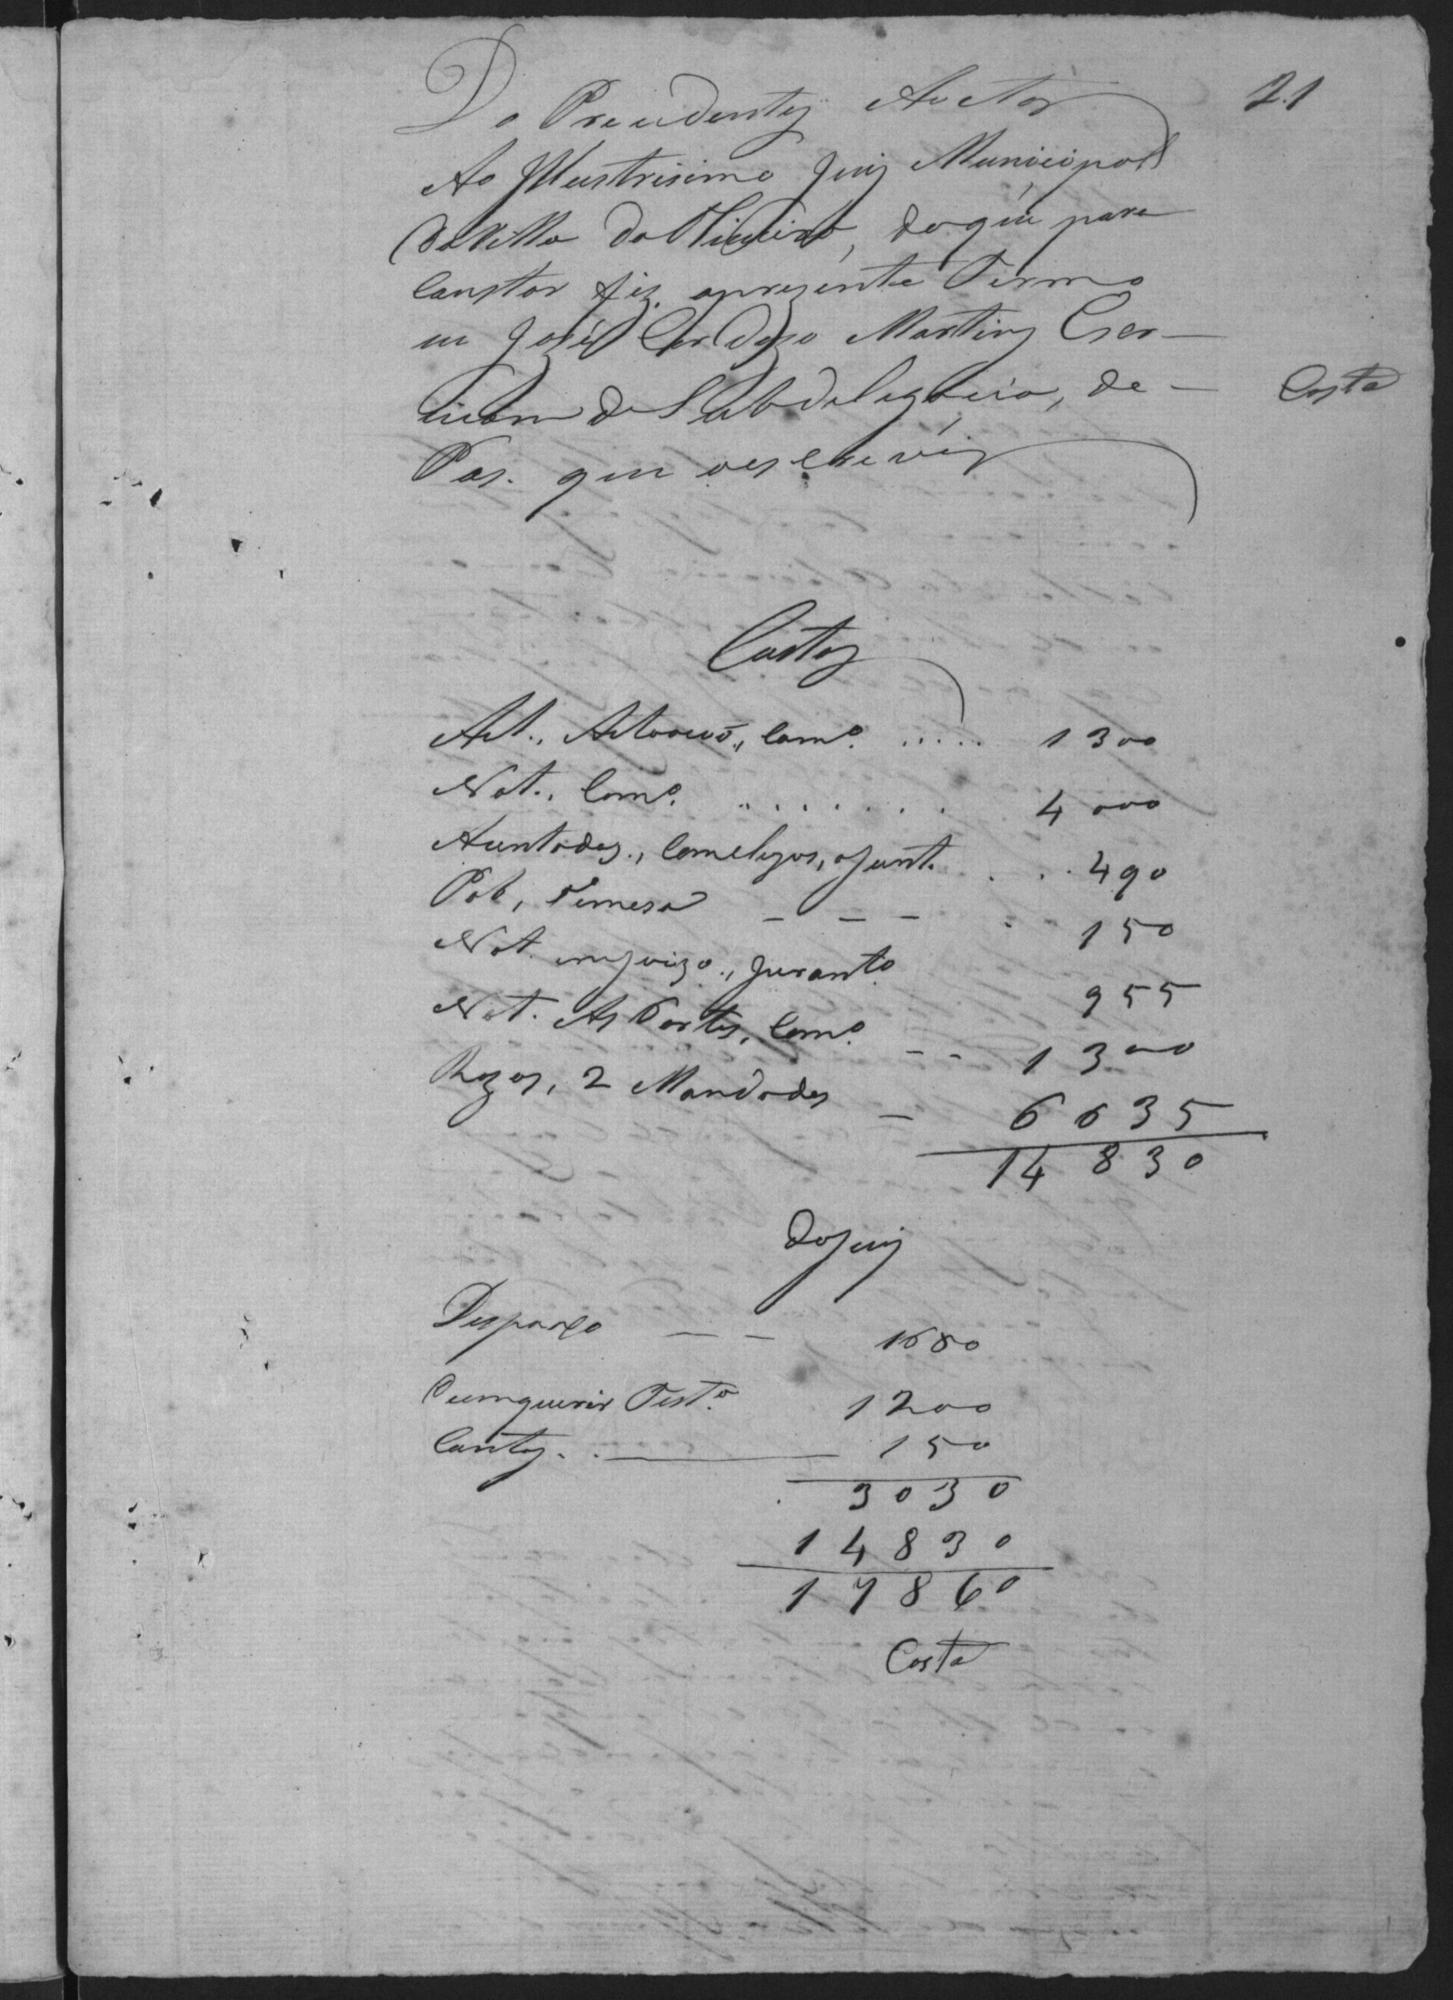 21
Do Precedentes Auctos
Ao Illustrisimo Juiz Municipal
da Villa do, do qúe para
Constar fiz o prezente Termo
eu José Cardozo Martins Escr-
ivam da Subdelegacia, de-
Costa
Paz. que o escreví
Custas
Aut., Autoacaõ, Comº. ..... 1300
Not., Comº. ....... 4000
Auntadas., Comcluzos, ajunt. . .. 490
Pub, Remesa - - - . .. 150
Not. em joizo., Juramto. 955
Not. As Partes, Comº. -- 1300
Razas, 2 Mandados - 6635
14830
do Juiz
Despaxo -- 1680
Enmquerir Testº. 1200
Contas. . — 150
3030
14830
17860
Costa